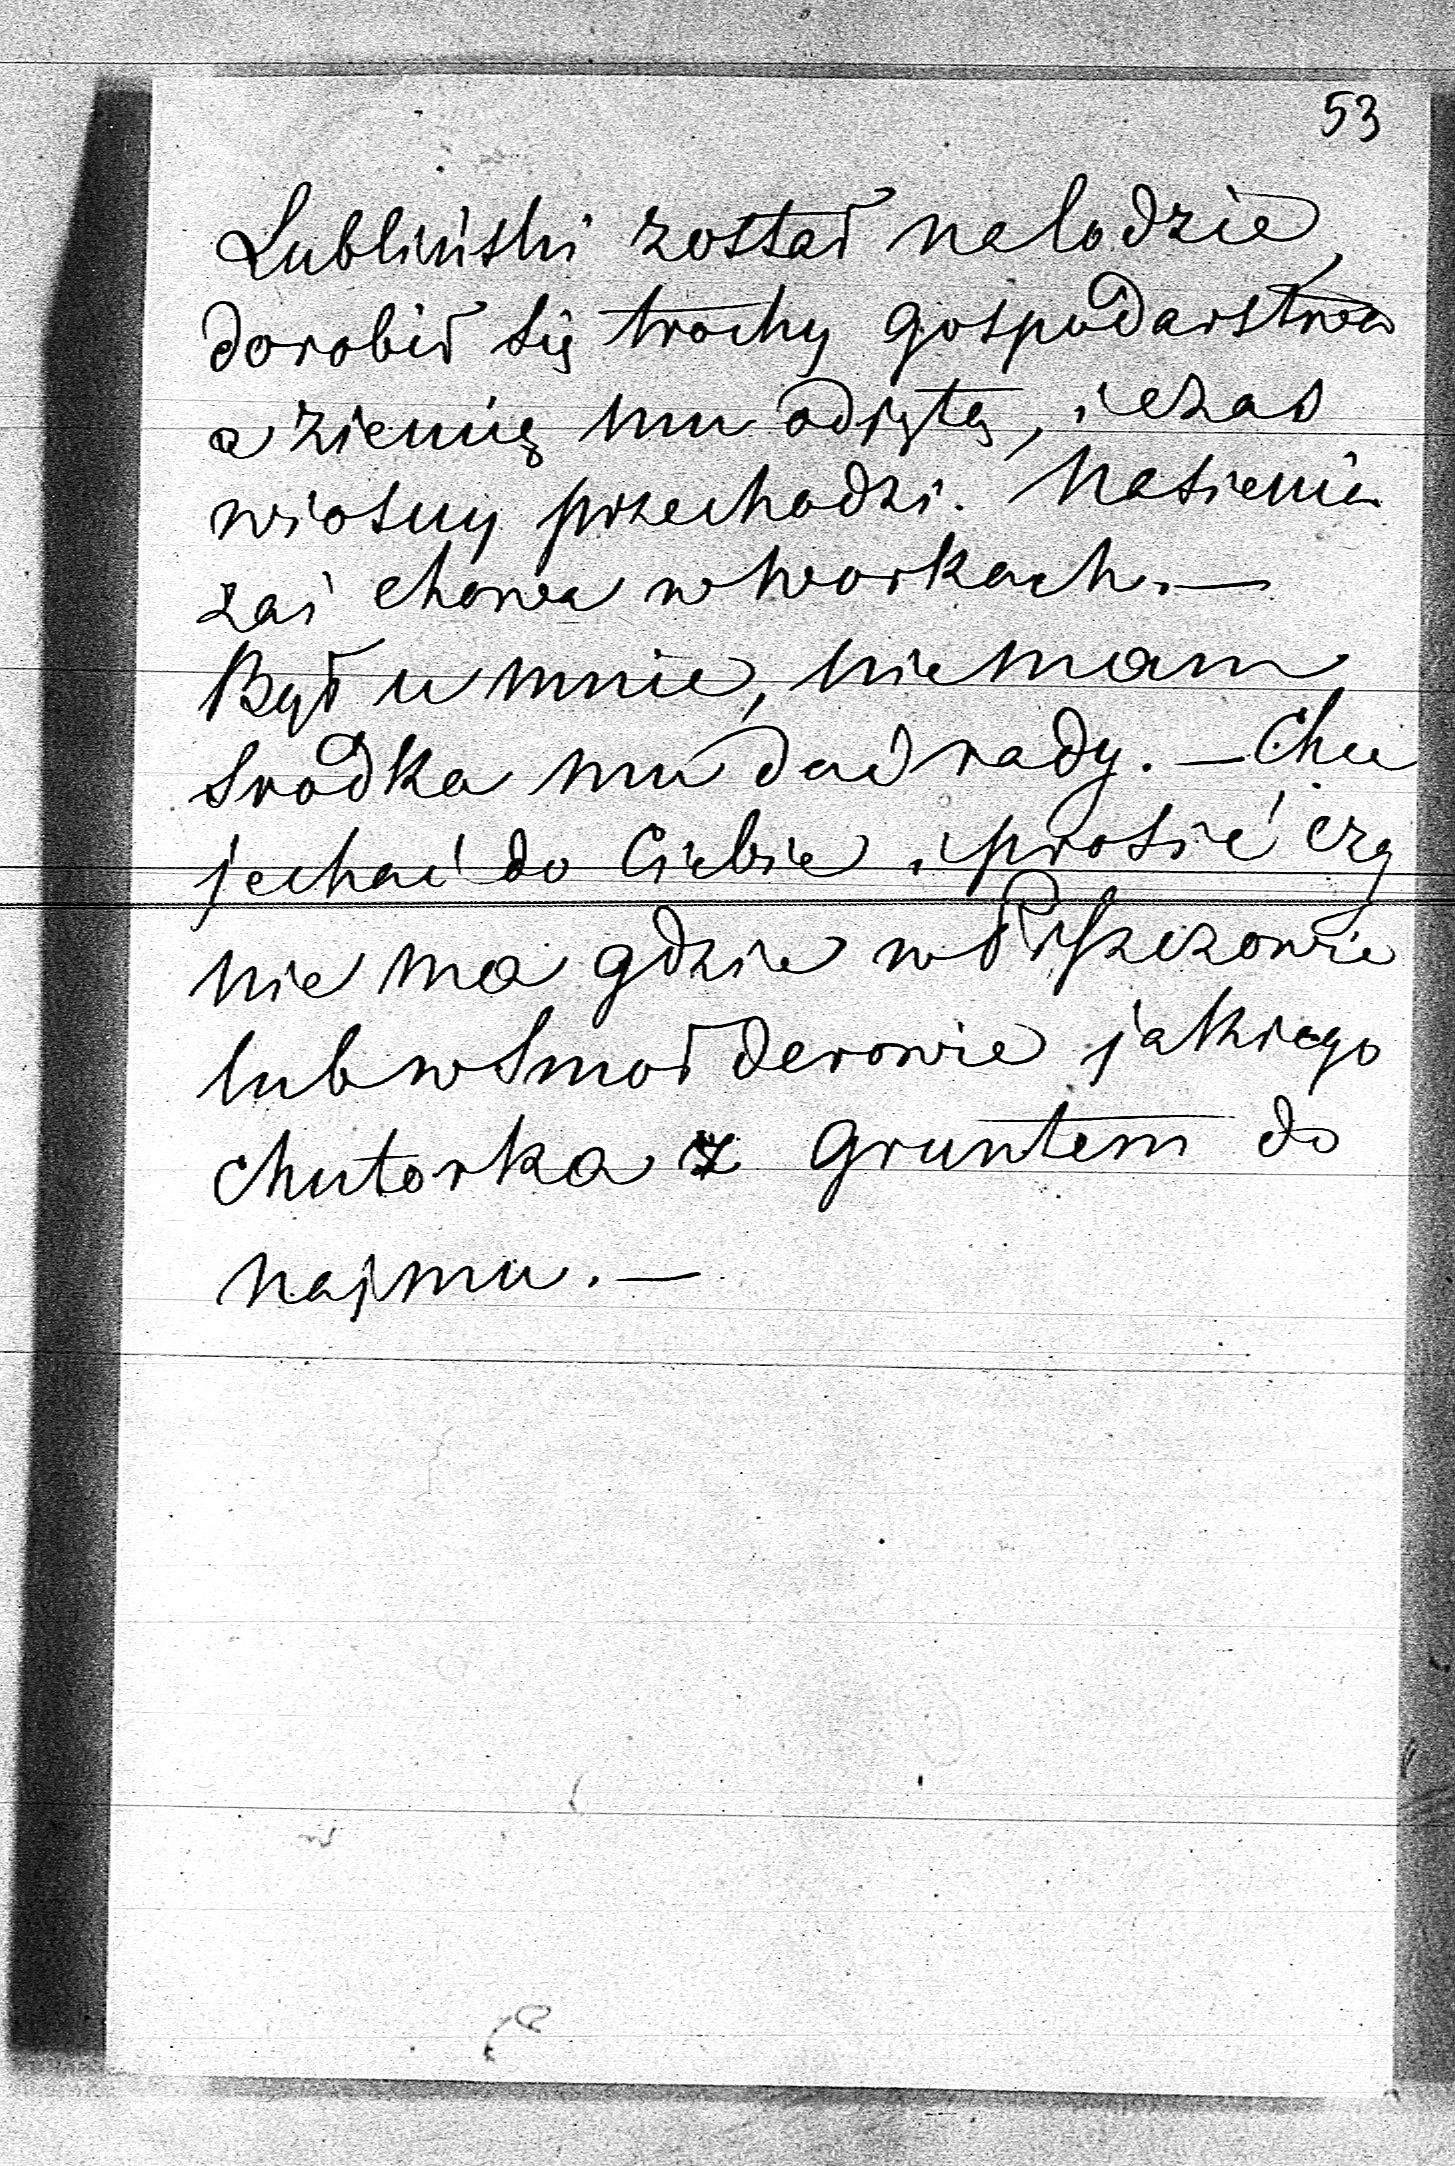 53
Lubliński został na lodzie,
dorobił się trochy gospodarstwa
a ziemię mu odjętą, i czas
wiosny przechodzi. Nasienia
zaś chowa w workach. —
Był u mnie, nie mam
srodka mu dać rady. — Chce
jechać do Ciebie i prosić czy
nie ma gdzie w
lub w Smołderowie jakiego
chutorka z gruntem do
najmu. —